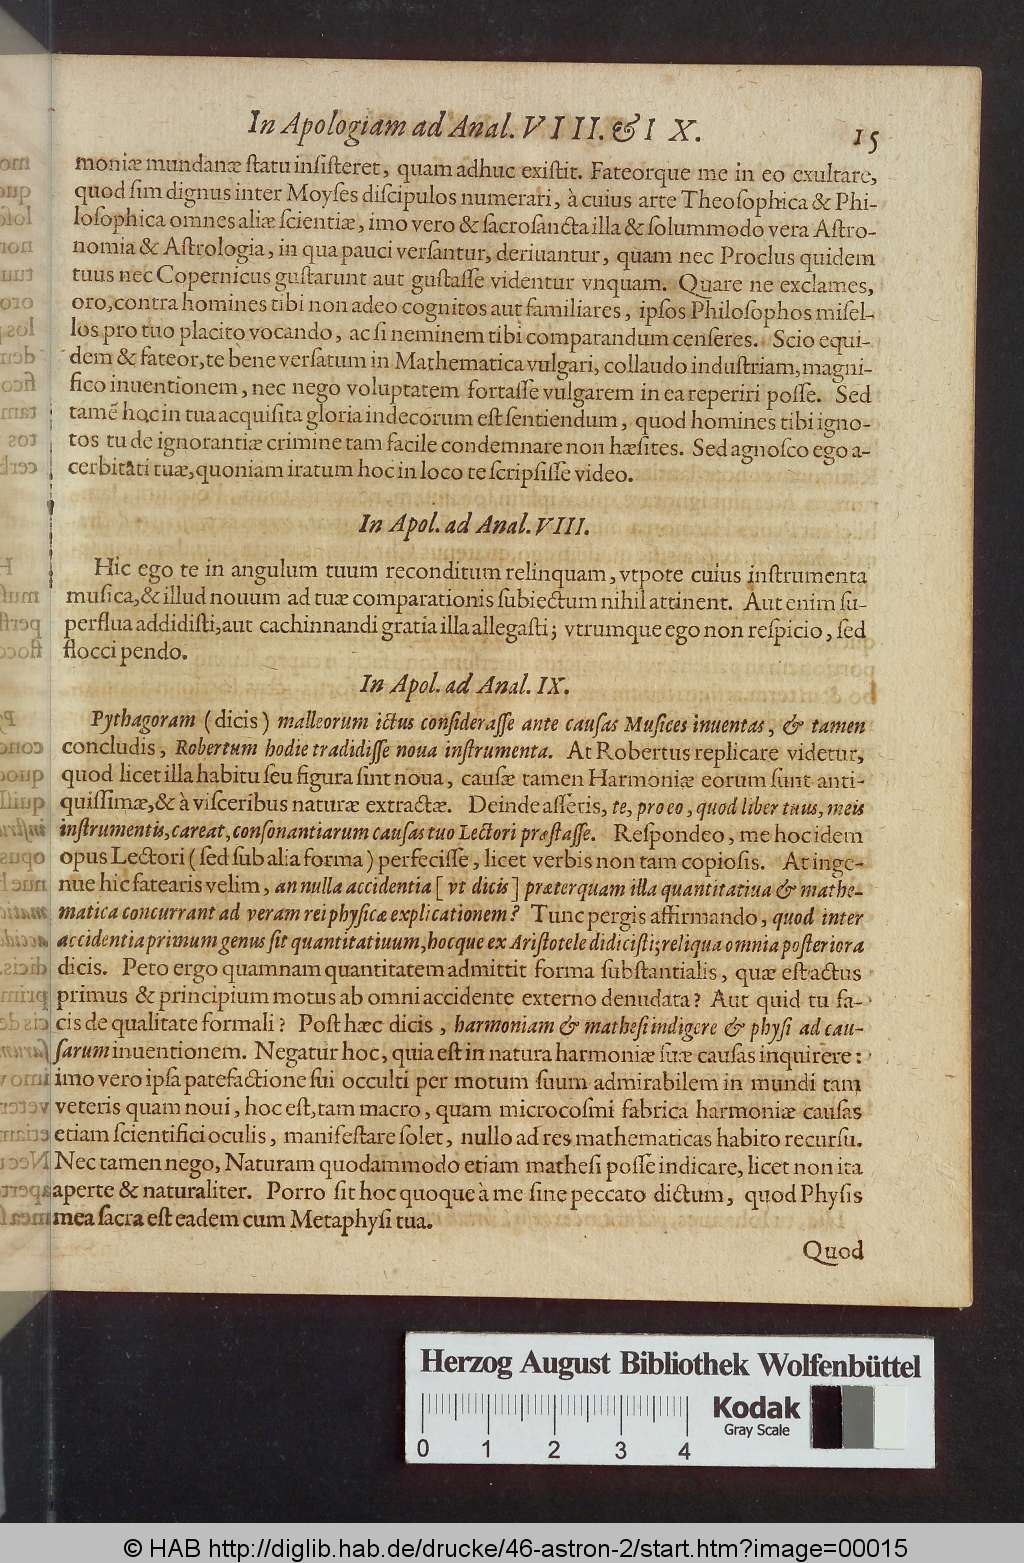 In Apologiam ad Anal. VIII. & IX. 15
moniæ mundanæ ſtatu inſiſteret, quam adhuc exiſtit. Fateorque me in eo exultare,
quod ſim dignus inter Moyſes diſcipulos numerari, à cuius arte Theoſophica & Phi-
loſophica omnes aliæ ſcientiæ, imo vero & ſacroſancta illa & ſolummodo vera Aſtro-
nomia & Aſtrologia, in qua pauci verſantur, deriuantur, quam nec Proclus quidem
tuus nec Copernicus guſtarunt aut guſtaſſe videntur vnquam. Quare ne exclames,
oro, contra homines tibi non adeo cognitos aut familiares, ipſos Philoſophos miſel-
los pro tuo placito vocando, ac ſi neminem tibi comparandum cenſeres. Scio equi-
dem & fateor, te bene verſatum in Mathematica vulgari, collaudo induſtriam, magni-
fico inuentionem, nec nego voluptatem fortaſſe vulgarem in ea reperiri poſſe. Sed
tamẽ hoc in tua acquiſita gloria indecorum eſt ſentiendum, quod homines tibi igno-
tos tu de ignorantiæ crimine tam facile condemnare non hæſites. Sed agnoſco ego a-
cerbitati tuæ, quoniam iratum hoc in loco te ſcripſiſſe video.
In Apol. ad Anal. VIII.
Hic ego te in angulum tuum reconditum relinquam, vtpote cuius inſtrumenta
muſica, & illud nouum ad tuæ comparationis ſubiectum nihil attinent. Aut enim ſu-
perflua addidiſti, aut cachinnandi gratia illa allegaſti; vtrumque ego non reſpicio, ſed
flocci pendo.
In Apol. ad Anal. IX.
Pythagoram (dicis) malleorum ictus conſideraſſe ante cauſas Muſices inuentas, & tamen
concludis, Robertum hodie tradidiſſe noua inſtrumenta. At Robertus replicare videtur,
quod licet illa habitu ſeu figura ſint noua, cauſæ tamen Harmoniæ eorum ſunt anti-
quiſſimæ, & à viſceribus naturæ extractæ. Deinde aſſeris, te, pro eo, quod liber tuus, meis
inſtrumentis, careat, conſonantiarum cauſas tuo Lectori præſtaſſe. Reſpondeo, me hoc idem
opus Lectori (ſed ſub alia forma) perfeciſſe, licet verbis non tam copioſis. At inge-
nue hic fatearis velim, an nulla accidentia [vt dicis] præterquam illa quantitatiua & mathe-
matica concurrant ad veram rei phyſicæ explicationem? Tunc pergis affirmando, quod inter
accidentia primum genus ſit quantitatiuum, hocque ex Ariſtotele didiciſti; reliqua omnia poſteriora
dicis. Peto ergo quamnam quantitatem admittit forma ſubſtantialis, quæ eſt actus
primus & principium motus ab omni accidente externo denudata? Aut quid tu fa-
cis de qualitate formali? Poſt hæc dicis, harmoniam & matheſi indigere & phyſi ad cau-
ſarum inuentionem. Negatur hoc, quia eſt in natura harmoniæ ſuæ cauſas inquirere:
imo vero ipſa patefactione ſui occulti per motum ſuum admirabilem in mundi tam
veteris quam noui, hoc eſt, tam macro, quam microcoſmi fabrica harmoniæ cauſas
etiam ſcientifici oculis, manifeſtare ſolet, nullo ad res mathematicas habito recurſu.
Nec tamen nego, Naturam quodammodo etiam matheſi poſſe indicare, licet non ita
aperte & naturaliter. Porro ſit hoc quoque à me ſine peccato dictum, quod Phyſis
mea ſacra eſt eadem cum Metaphyſi tua.
Quod
Herzog August Bibliothek Wolfenbüttel
Kodak
Gray Scale
0 1 2 3 4
© HAB http://diglib.hab.de/drucke/46-astron-2/start.htm?image=00015